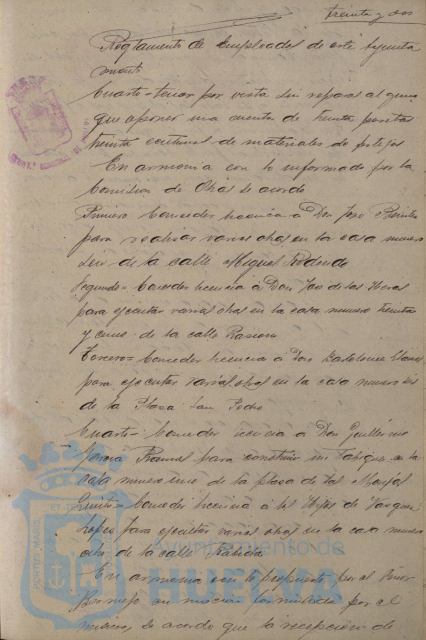 treinta y dos
Reglamento de Empleados de este Ayunta
miento
Cuarto = tener por vista sin reparo alguno
que oponer una cuenta de treinta pesetas
treinta centimos de materiales de
En armonia con lo informado por la
Comision de Obras se acordo
Primero Conceder licencia a Don Jose
para realizar varias obras en la casa numero
seis de la calle Miguel Redondo
Segundo = Conceder licencia a Don de las Heras
para ejecutar varias obras en la casa numero treinta
y cinco de la calle Rascon
Tercero = Conceder licencia a Don
para ejecutar varias obras en la casa numero
de la Plaza San Pedro
Cuarto = Conceder licencia a Don Guillermo
Garcia para construir un tabique en la
casa numero de la plaza de las Monjas
Quinto = Conceder licencia a los Hijos de Vazquez
Lopez para ejecutar varias obras en la casa numero
ocho de la calle
En armonia con lo propuesto por el Señor
Bermejo en mocion formulada por el
mismo, se acordo que la recepcion de
Ayuntamiento de
HUELVA